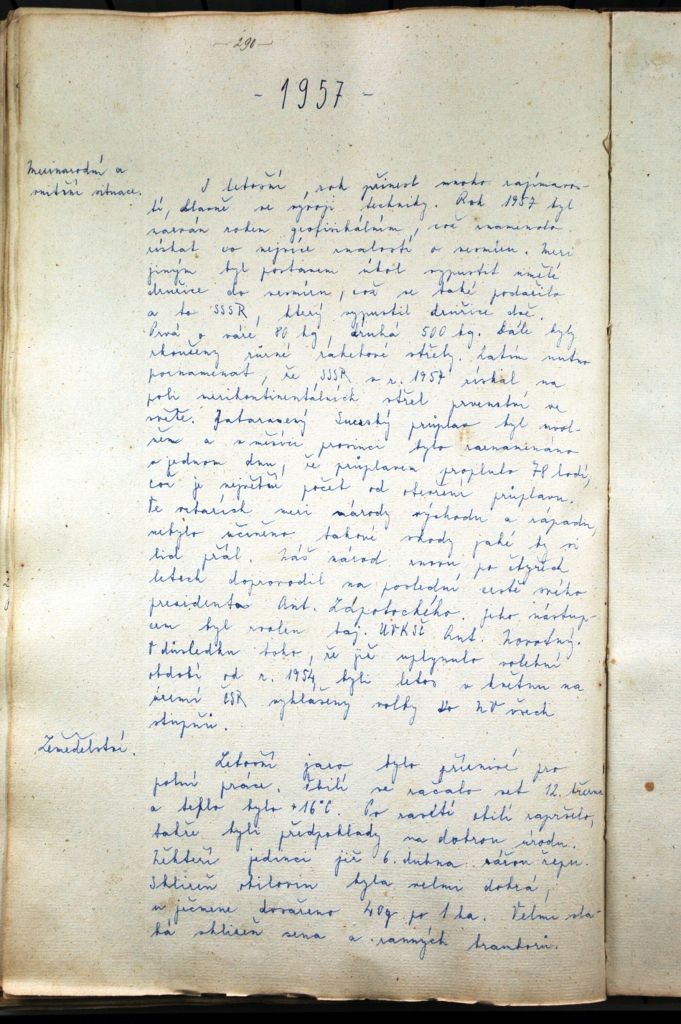 – 290 –
– 1957 –
Mezinárodní a
vnitřní situace.
I letošní rok přinesl mnoho zajímavos-
tí, hlavně ve vývoji techniky. Rok 1957 byl
nazván rokem geofisikálním, což znamenalo
získat co nejvíce znalostí o vesmíru. Mezi
jiným byl postaven úkol vypustit umělé
družice do vesmíru, což se také podařilo
a to SSSR, který vypustil družice dvě.
Prvá o váze 80 kg, druhá 500 kg. Dále byly
zkoušeny různé raketové střely. Zatím nutno
poznamenat, že SSSR v r. 1957 získal na
poli mezikontinentálních střel prvenství ve
světě. Zatarasený Suezský průplav byl uvol-
něn a v měsíci prosinci bylo zaznamenáno
v jednom dnu, že průplavem proplulo 78 lodí,
což je největší počet od otevření průplavu.
Ve vztazích mezi národy východu a západu,
nebylo učiněno takové shody jaké by si
lid přál. Náš národ znovu po čtyřech
letech doprovodil na poslední cestě svého
presidenta Ant. Zápotockého. Jeho nástup-
cem byl zvolen taj. ÚVKSČ Ant. Novotný.
V důsledku toho, že již uplynulo volební
období od r. 1954 byli letos v květnu na
území ČSR vyhlášeny volby do NV všech
stupňů.
Zemědělství.
Letošní jaro bylo příznivé pro
polní práce. Obilí se začalo set 12. března
a teplo bylo +16°C. Po zasetí obilí zapršelo,
takže byli předpoklady na dobrou úrodu.
Někteří jedinci již 6. dubna sázou řepu.
Sklizeň obilovin byla velmi dobrá,
u ječmene dovářeno 40q po 1 ha. Velmi sla-
bá sklizeň sena a ranných bramborů.